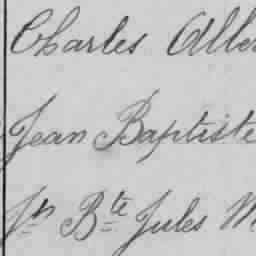 Charles Albe
Jean Baptiste
Jn Bte Jules M